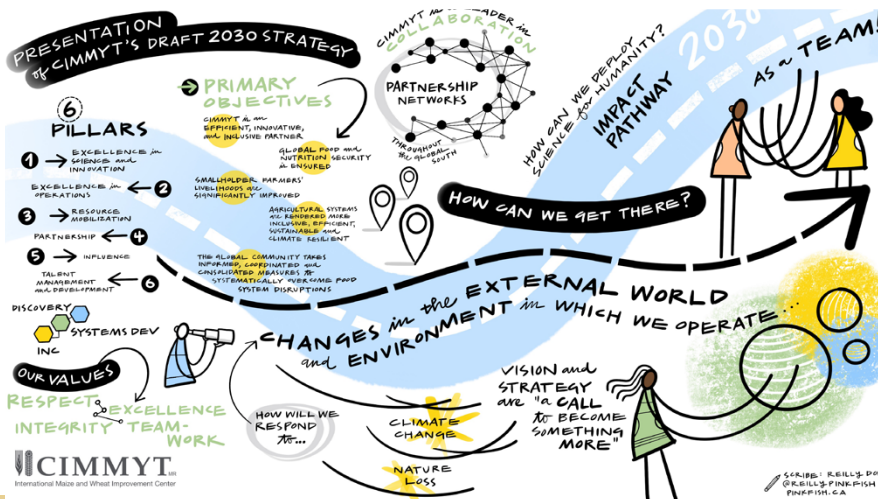 PRESENTATION
of CIMMYT'S DRAFT 2030 STRATEGY
6
PILLARS
1 EXCELLENCE in
SCIENCE and
INNOVATION
EXCELLENCE in
OPERATIONS 2
3 RESOURCE
MOBILIZATION
PARTNERSHIP 4
5 INFLUENCE
TALENT
MANAGEMENT
and DEVELOPMENT 6
DISCOVERY
SYSTEMS DEV
INC
OUR VALUES
RESPECT
INTEGRITY
EXCELLENCE
TEAM-
WORK
CIMMYT MR
International Maize and Wheat Improvement Center
PRIMARY
OBJECTIVES
CIMMYT is an
EFFICIENT, INNOVATIVE,
and INCLUSIVE PARTNER
GLOBAL FOOD and
NUTRITION SECURITY
is ENSURED
SMALLHOLDER FARMERS'
LIVELIHOODS are
SIGNIFICANTLY IMPROVED
AGRICULTURAL SYSTEMS
are RENDERED MORE
INCLUSIVE, EFFICIENT,
SUSTAINABLE and
CLIMATE RESILIENT
THE GLOBAL COMMUNITY TAKES
INFORMED, COORDINATED and
CONSOLIDATED MEASURES to
SYSTEMATICALLY OVERCOME FOOD
SYSTEM DISRUPTIONS
CIMMYT is a LEADER in
COLLABORATION
PARTNERSHIP
NETWORKS
THROUGHOUT
the GLOBAL
SOUTH
HOW CAN WE DEPLOY
SCIENCE for HUMANITY?
IMPACT
PATHWAY
2030
AS a TEAM!
HOW CAN WE GET THERE?
CHANGES in the EXTERNAL WORLD
and ENVIRONMENT in WHICH WE OPERATE...
HOW WILL WE
RESPOND
to...
CLIMATE
CHANGE
NATURE
LOSS
VISION and
STRATEGY
are "a CALL
to BECOME
SOMETHING
MORE"
SCRIBE: REILLY DO
@REILLYPINKFISH
PINKFISH.CA